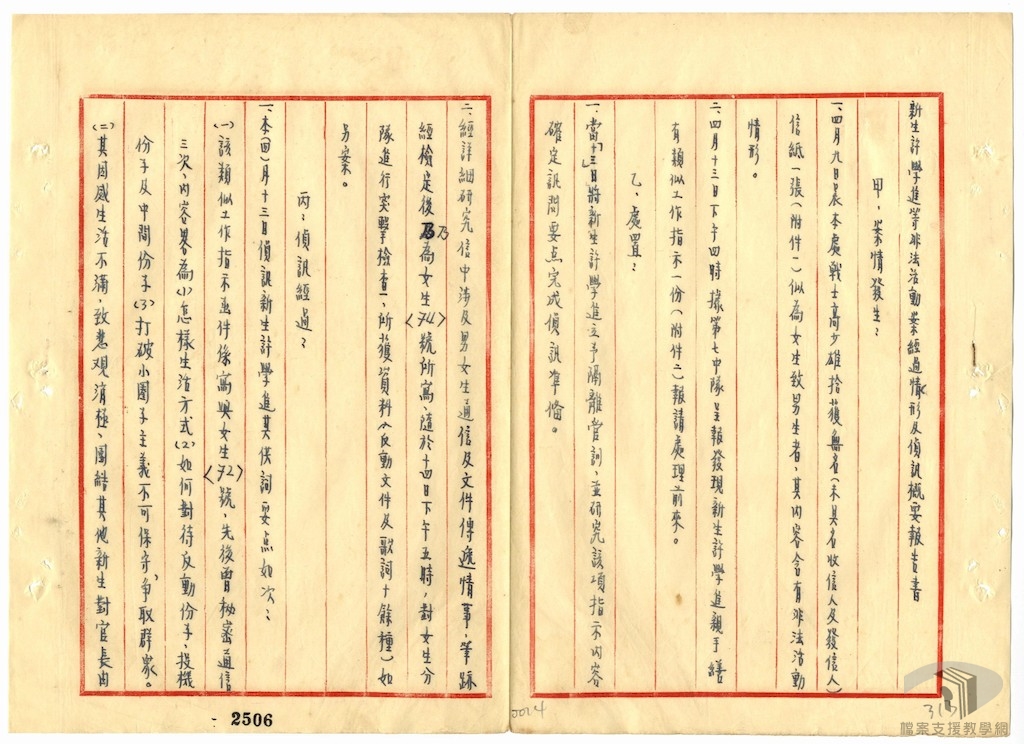 新生計學進等非法活動案經過情形及偵訊概要報告書
甲、案情發生:
一、四月九日晨本處戰士高少雄拾獲無名(未具名收信人及發信人)
信紙一張(附件一)似為女生致男生者,其內容含有非法活動
情形。
二、四月十三日下午四時據第七中隊呈報發現新生計學進親手繕
有類似工作指示一份(附件二)報請處理前來。
乙、處置:
一、當十三日將新生計學進立予隔離管詞,並研究該項指示內容
確定訊問要点完成偵訊準備。
二、經詳細研究信中涉及男女生通信及文件傳遞情事,筆跡
經檢定後乃為女生〈74〉號所寫,隨於十四日下午五時,對女生分
隊進行突擊檢查,所獲資料(反動文件及歌詞十餘種)如
另案。
丙、偵訊經過:
一、本(四)月十三日偵訊新生計學進其供詞要点如次:
(一)該類似工作指示函件係寫與女生〈72〉號,先後曾秘密通信
三次,內容畧為(1)怎樣生活方式(2)如何對待反動份子、投機
份子及中間份子(3)打破小圈子主義不可保守,爭取群眾。
(二)其因感生活不滿,致悲观消極、團結其他新生對官長由
2506
2014
313
檔案支援教學網